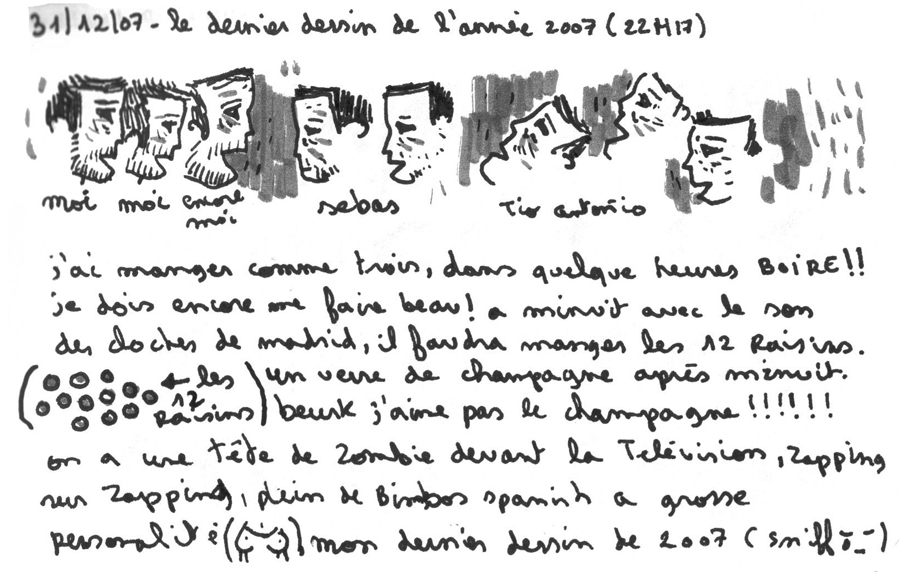 31/12/07 - le dernier dessin de l'année 2007 (22H17)
moi moi encore moi sebas Tio antoñio
j'ai manger comme trois, dans quelque heures BOIRE!!
je dois encore me faire beau! a minuit avec le son
des cloches de madrid, il faudra manger les 12 Raisins.
(← les 12 Raisins) un verre de champagne après minuit.
beurk j'aime pas le champagne!!!!!!
on a une tête de Zombie devant la Télévision, Zapping
sur Zapping, plein de Bimbos spanish a grosse
personalité ( ) mon dernier dessin de 2007 (sniff ō_-)